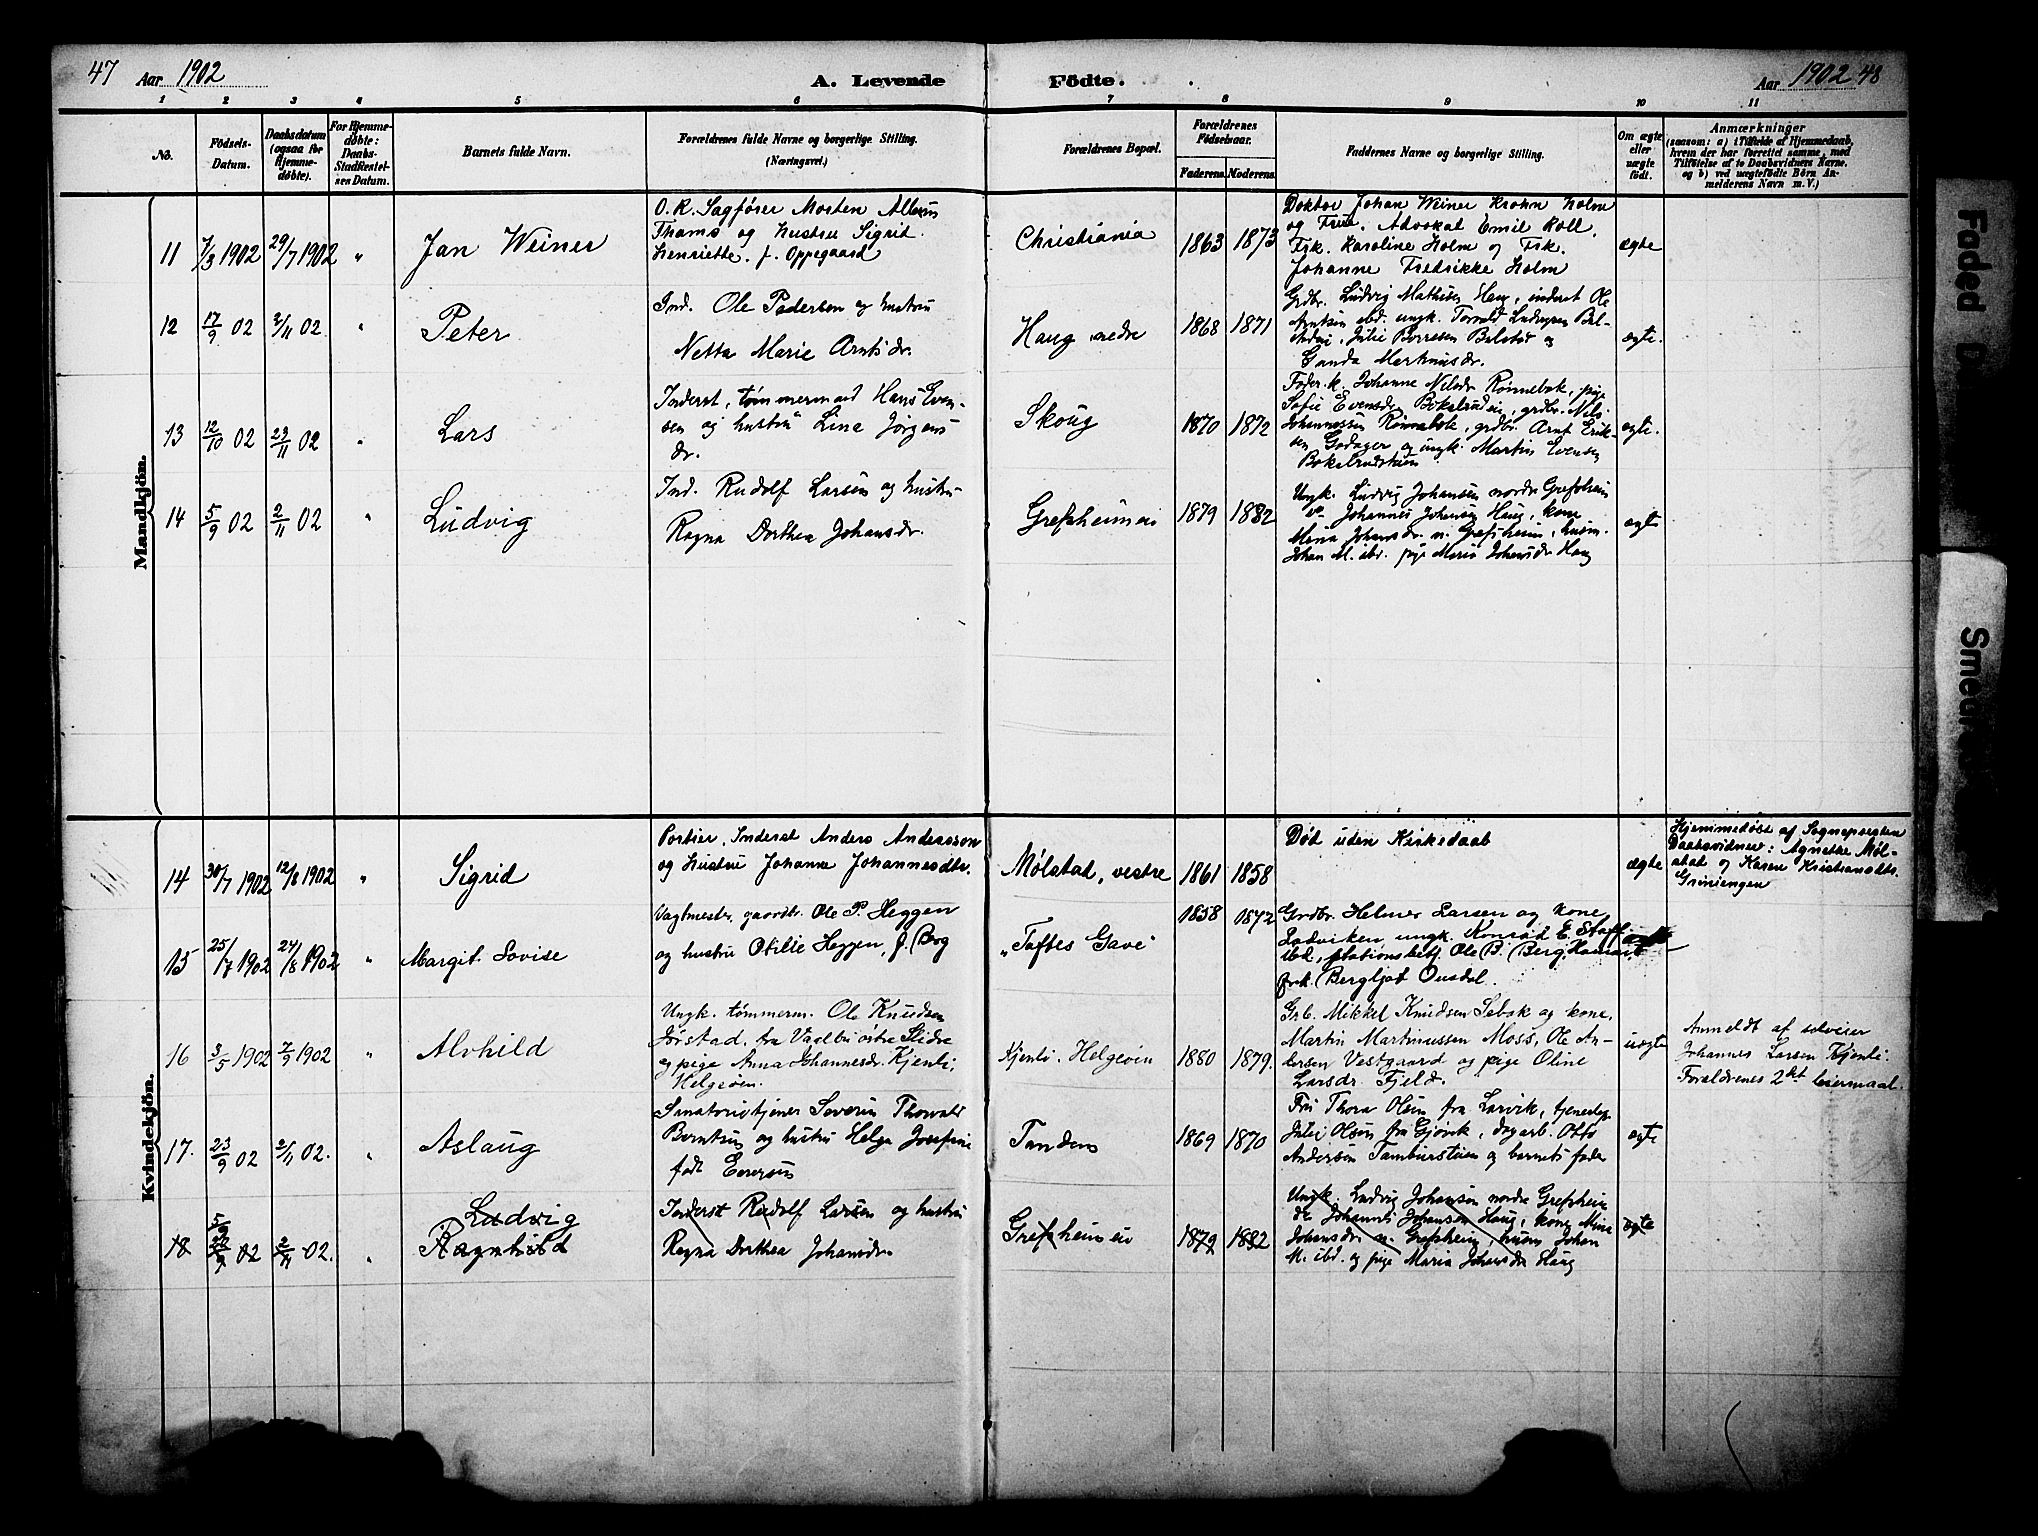 47 Aar 1902
A. Levende Födte.
Aar 1902 48
1 2 3 4 5 6 7 8 9 10 11
No.
Födsels-
Datum.
Daabsdatum
(ogsaa for
Hjemme-
döbte).
For Hjemme-
döbte:
Daabs-
Stadfæstel-
ses Datum.
Barnets fulde Navn.
Forældrenes fulde Navne og borgerlige Stilling.
(Næringsvei.)
Forældrenes Bopæl.
Forældrenes
Födselsaar.
Faderens. Moderens.
Faddernes Navne og borgerlige Stilling.
Om ægte
eller
uægte
födt.
Anmærkninger
(saasom: a) i Tilfælde af Hjemmedaab,
hvem der har forrettet samme, med
Tilføielse af to Daabsvidners Navne.
og b) ved uægtefödte Börn An-
melderens Navn m. V.)
Mandkjön.
11 7/3 1902 29/7 1902 " Jan Weiner
O. R. Sagfører Morten
Thams og hustru Sigrid
Henriette. f. Oppegaard
Christiania 1863 1873
Doktor Johan Weiner Krohn Holm
og Frue. Advokat Emil Roll.
Frk. Karoline Holm og Frk.
Johanne Fredrikke Holm
ægte
12 17/9 02 2/11 02. " Peter
Ind. Ole Pedersen og hustru
Netta Marie Arntsdr.
Haug nedre 1868 1871
Grdbr. Ludvig Mathisen Haug, inderst Ole
Arntsen ibd. ungk. Torvald
Julie Borresen og
Ganda
ægte.
13 12/10 02 23/11 02 " Lars
Inderst, tømmermand Hans Even-
sen og hustru Lina Jörgens
dr.
Skoug 1870 1872
Faderk. Johanne Nilsdr Rønnebek, pige
Sofie Evensdr. grdbr. Nils
Johannessen grdbr. Arnt Erik-
sen Godager og ungk. Martin Evensen
ægte.
14 5/9 02 2/11 02 " Ludvig
Ind. Rudolf Larsen og hustru
Ragna Dorthea Johansdr.
Grefsheimei 1879 1882
Ungk. Ludvig Johansen nordre Grefsheim
Johannes Johansen Haug, kone
Mina Johansdr. n. Grefsheim, husm.
Johan M. ibd. pige Maria Johansdr Haug
ægte
Kvindekjön.
14 30/7 1902 12/8 1902 " Sigrid
Portier, Inderst Anders Andersson
og Hustru Johanne Johannesdtr.
Mølstad, vestre 1861 1858
Død uden Kirkedaab
ægte
Hjemmedøbt af Sognepresten
Daabsvidner: Agnethe Møl-
stad og Karen Kristiansdtr.
Griniengen
15 25/7 1902 24/8 1902 " Margit Lovise
Vagtmester, gaardbr. Ole P. Heggen
og hustru Otilie Heggen, f. Berg
"Toftes Gave" 1858 1872
Grdbr. Helmer Larsen og kone,
ungk. Konrad E.
ibd, stationsbetj. Ole B. Berg, Hamar
frk. Bergljot Onsdal.
16 3/5 1902 7/9 1902 " Alvhild
Ungk. tømmerm. Ole Knudsen
Jørstad, fra Vaalbu østre Slidre
og pige Anna Johannesdr. Kjenli,
Helgeøen.
Kjenli, Helgeøen 1880 1879.
Grb. Mikkel Knudsen Sebok og kone,
Martin Martinussen Moss, Ole An-
dersen Vestgaard og pige Oline
Larsdr. Fjeld.
uægte
Anmeldt af selveier
Johannes Larsen Kjenli.
Forældrenes 2det leiermaal.
17. 23/9 02 2/11 02. " Aslaug
Severin Thorvald
Berntsen og hustru Helga Josefine
født Evensen
Tanden 1869 1870
Fru Thora Olsen fra Larvik, tjenestep.
Julie Olsen fra Gjøvik, dagarb. Otto
Andersen og barnets fader
ægte
18 5/9 02 2/11 02. " Ludvig
Ragnhild
Inderst Rudolf Larsen og hustru
Ragna Dorthea Johansdr
Grefsheimei 1879 1882
Ungk. Ludvig Johansen nordre Grefsheim
Johannes Johansen Haug, kone Mina
Johansdr n. Grefsheim, husm Johan
M. ibd. og pige Maria Johansdr Haug
ægte
Faded D
Smear